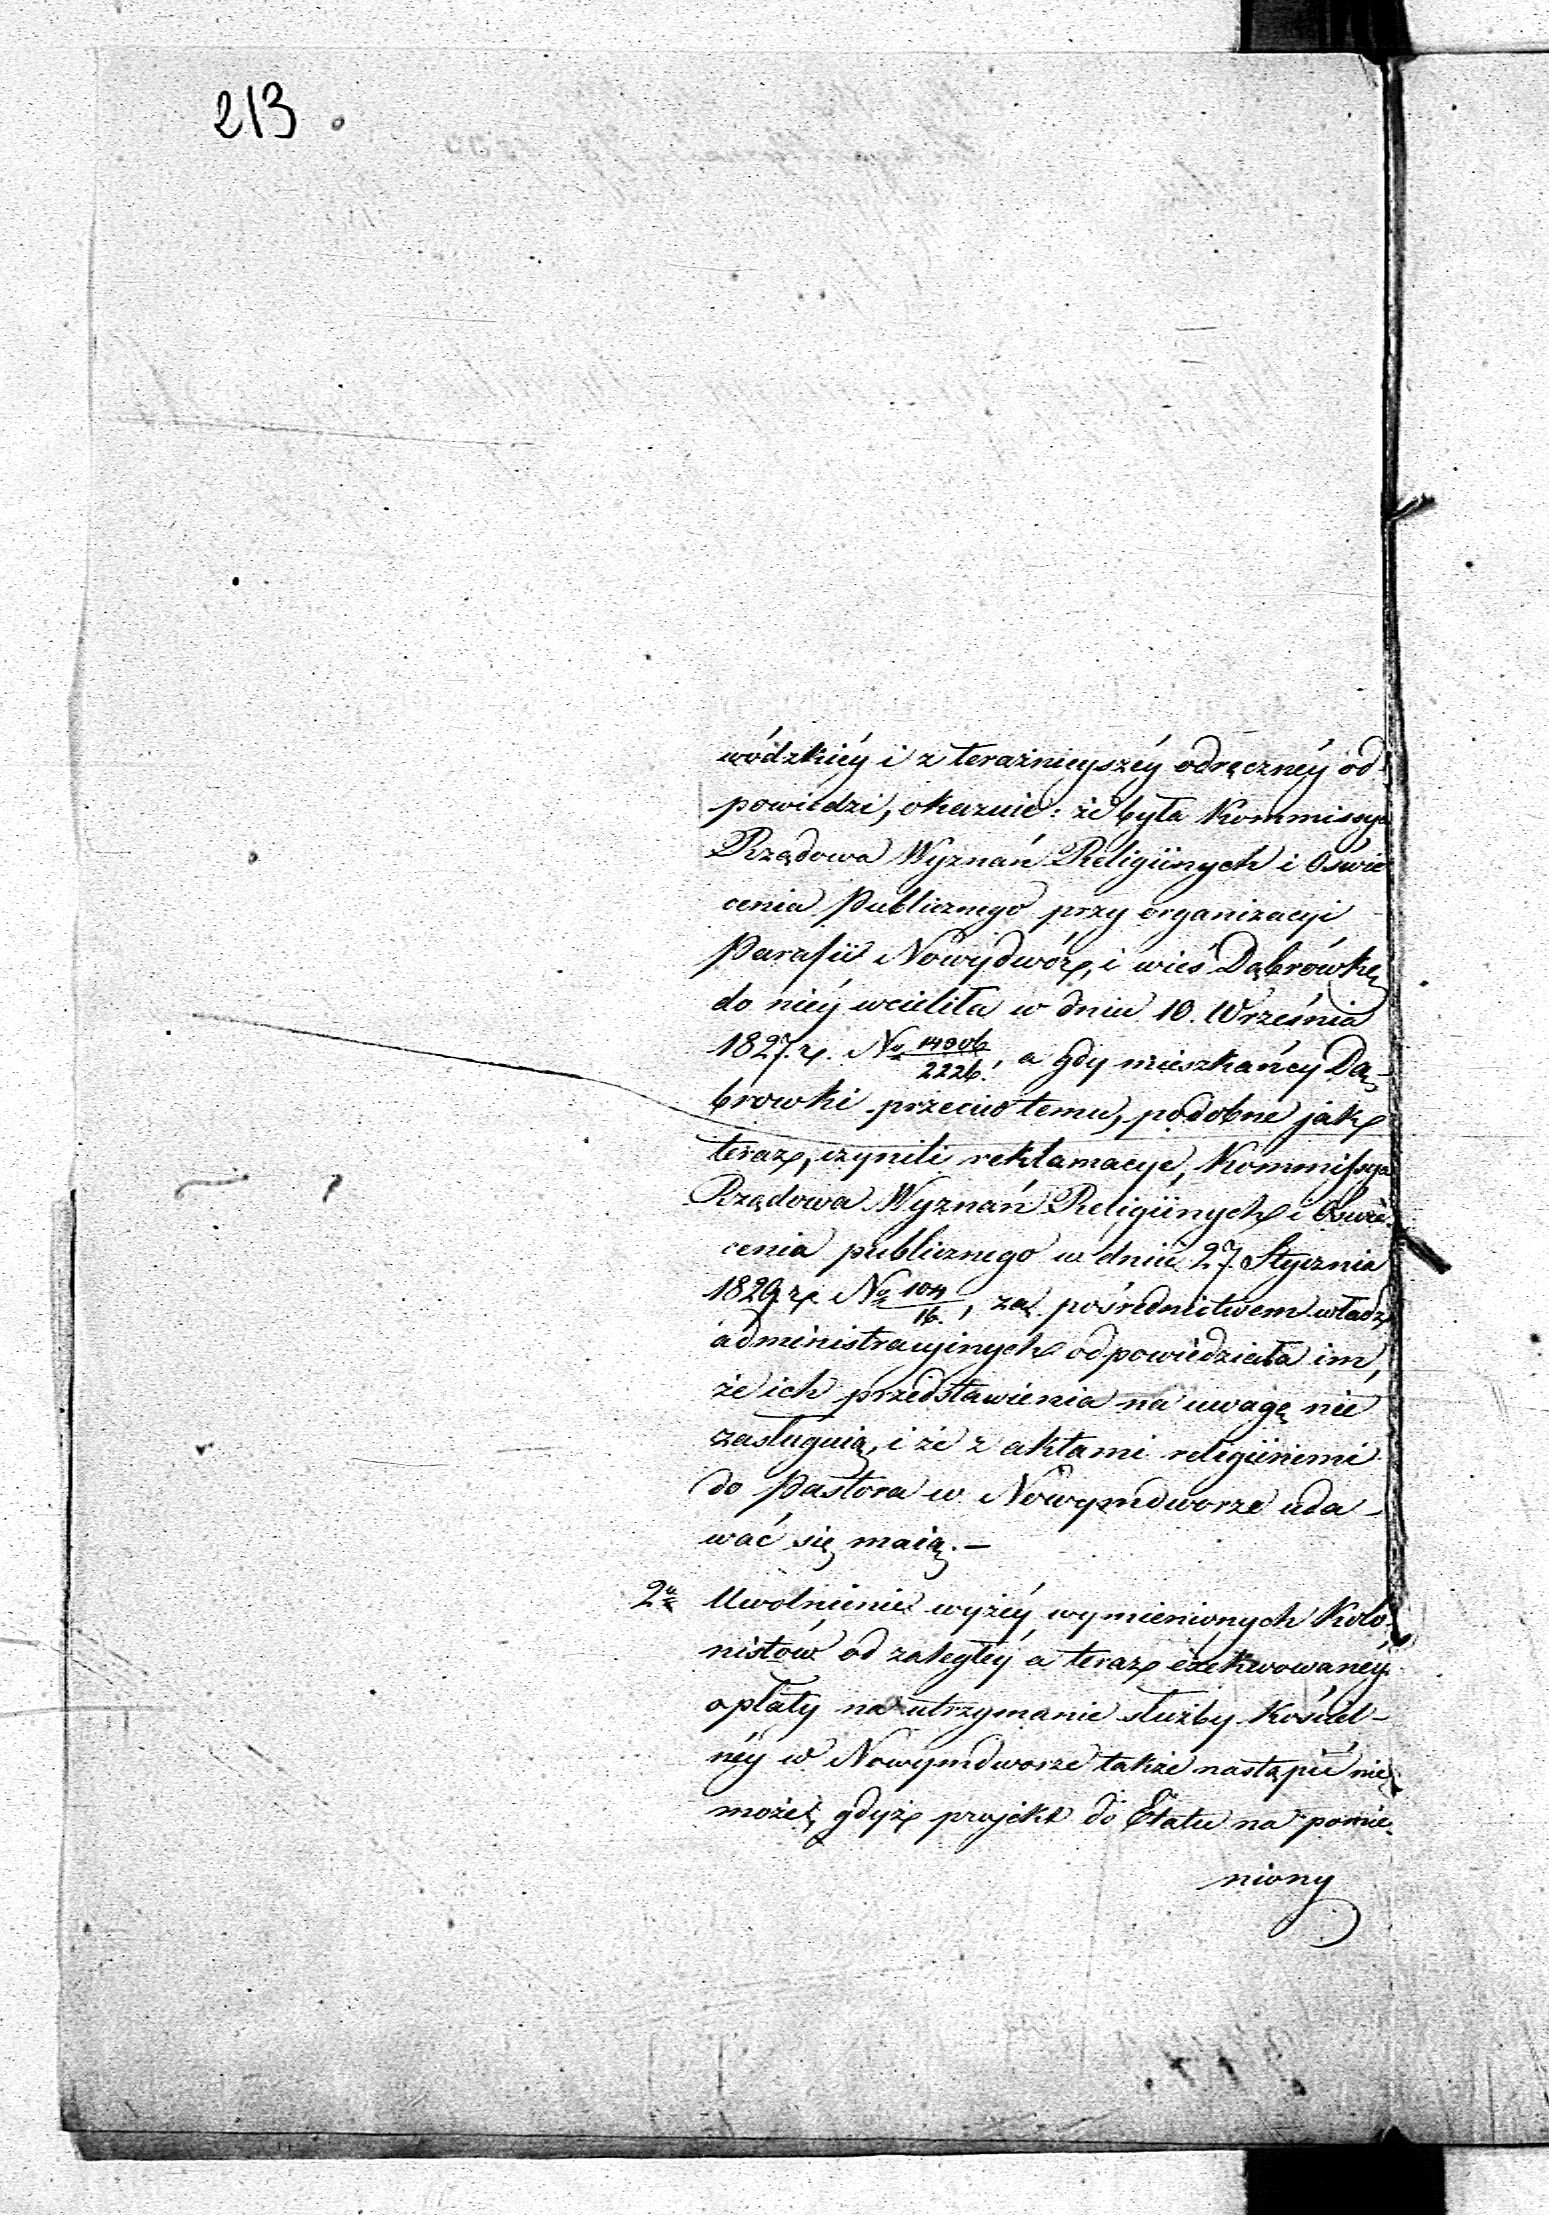 213
wódzkiéy i z teraźnieyszéy odręcznéy od
powiedzi, okazuie: że była Kommissya
Rządowa Wyznań Religiinych i Oświe
cenia Publicznego przy organizacyi
Parafii Nowydwór, i wieś Dąbrówkę
do niéy wcieliła w dniu 10. Września
1827. r. No 14906/2226., a gdy mieszkańcy Dą-
browki przeciw temu, podobne jak
teraz, czynili reklamacye, Kommissya
Rządowa Wyznań Religiinych i Oświe-
cenia publicznego w dniu 27 Stycznia
1829 r. No 104/16., za pośrednictwem władz
administracyinych odpowiedziała im,
że ich przedstawienia na uwagę nie
zasługuią, i że z aktami religiinemi
do Pastora w Nowymdworze uda-
wać się maią.-
2o Uwolnienie wyżéy wymienionych Kolo-
nistów od zaległéy a teraz exekwowanéy
opłaty na utrzymanie służby Kościel-
néy w Nowymdworze także nastąpić nie
może, gdyż projekt do Etatu na pomie-
niony